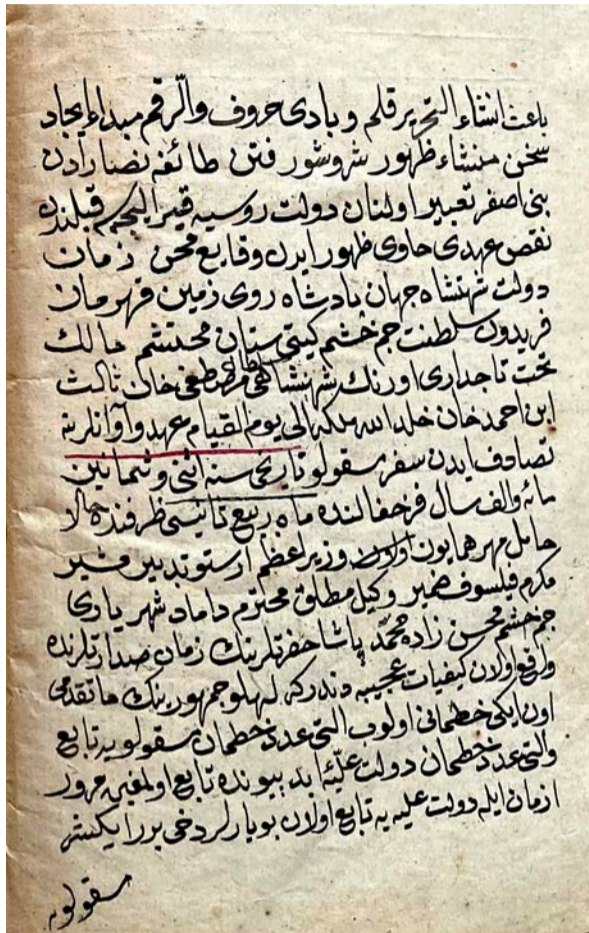 باعث انشاء التحریر قلم و بادی حروف والرقم مبداء ایجاد
سخن منشاء ظهور شر و شور فتن طائفه نصارادن
بنی اصفر تعبیر اولنان دولت روسیه قبلندن
نقض عهدی حاوی ظهور ایدن وقایع محن زمان
دولت شهنشاه جهان پادشاه روی زمین قهرمان
فریدون سلطنت جم حشم کیتی ستان محتشم مالک
تخت تاجداری اورنک شهنشاهی مصطفی خان ثالث
ابن احمد خان خلد الله ملکه الی یوم القیام عهد و آوانلرینه
تصادف ایدن سفر مسقولو تاریخی سنه اثنی و ثمانین
مائه والف سال فرخفالنده ماه ربیع ثانیسی ظرفنده حالا
حامل مهر همایون اولان وزیر اعظم ارستو تدبیر مشیر
مکرم فیلسوف ضمیر وکیل مطلق محترم داماد شهریاری
جم حشم محسن زاده محمد پاشا حضرتلرینك زمان صدارتلرنده
واقع اولان کیفیات عجیبه دندرکه لهلو جمهورینك ماتقدمی
اون ایکی خطمانی اولوب التی عدد خطمان مسقولویه تابع
والتی عدد خطمان دولت علیۀ ابد پیونده تابع اولمغین مرور
ازمان ایله دولت علیه یه تابع اولان بویارلر دخی برر ایکیشر
مسقولویه